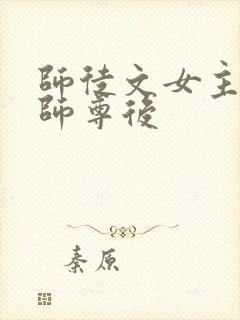 師徒文女主
師尊後
秦原